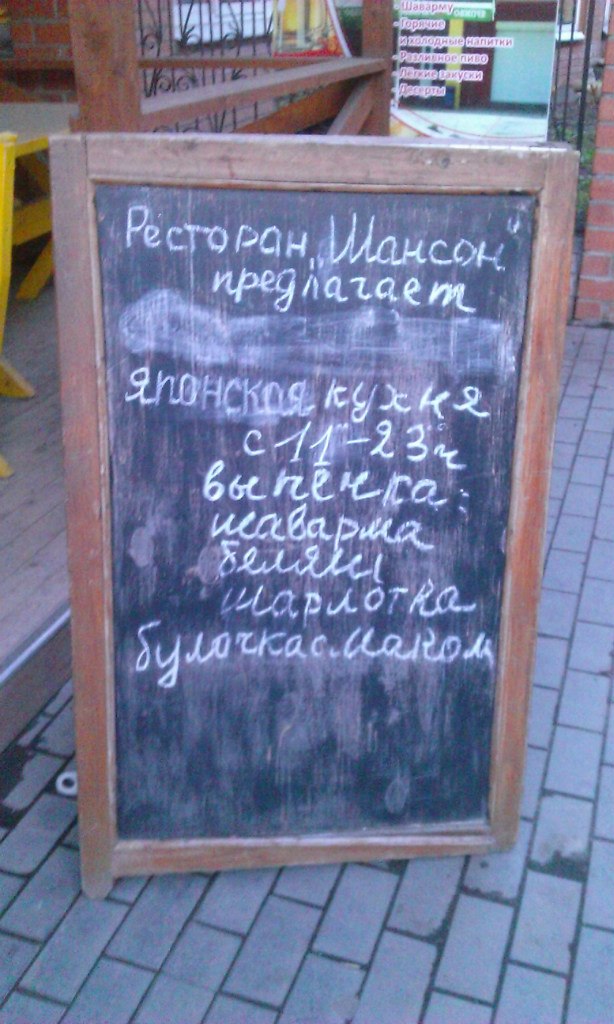 - Шаварму
- Горячие
и холодные напитки
- Разливное пиво
- Лёгкие закуски
- Десерты
Ресторан „Шансон"
предлагает
японская кухня
с 11⁰⁰-23⁰⁰ч
выпечка:
шаварма
беляши
шарлотка
булочка с маком